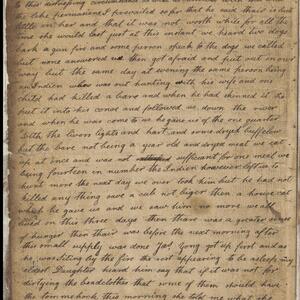 to this distressing circumstance
the babe she remained prevailed so far that he said their is but
little in her and that it was not worth while for all the
one she would last just at this instant we heard two dogs
bark a gun fire and some person speak to the dogs we called
but none answered we then got afraid and put out on our
way but the same day at evening the same person being
an Indien who was out hunting with his wife and one
child had killed a bare and when he had skinned it he
put it into his canoe and followed us down the river
and when he come to us he gave us of the one quarter
with the livers lights and hart and some dryed buffelow
but the bare not being a year old and dryed meat we eat
up at once and was not sufficient for one meal we
being fourteen in number the Indien however offering to
hunt more the next day we over took him but he had not
killed any thing save a cub not biger then a house cat
which he gave us and we saw him no more we all
lived on this three days then thare was a greater
of hunger then thair was before the next morning after
this small supply was done Jas Yong got up first and as
he was siting by the fire the rest appearing to be asleep my
eldest Daughter heard him say that if it was not for
dirtying the beadcloths that some of them should have
the tommehock this morning she told me what he